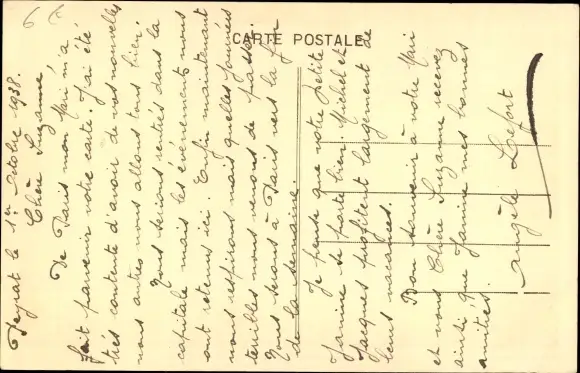 66
CARTE POSTALE
Peyrat le 1er Octobre 1938.
Chère Suzanne,
De Paris mon Mari m'a
fait parvenir votre carte. J'ai été
très contente d'avoir de vos nouvelles
nous autres nous allons tous bien.
Nous serions rentrés dans la
capitale mais les événements nous
ont retenus ici. Enfin maintenant
nous respirons mais quelles journées
terribles nous venons de passer.
Nous serons à Paris vers la fin
de la semaine.
Je pense que votre petite
Janine se porte bien. Michel et
Jacques profitent largement de
leurs vacances.
Bon souvenir à votre Mari
et vous Chère Suzanne recevez
ainsi que Janine mes bonnes
amitiés.
Angèle Lefort